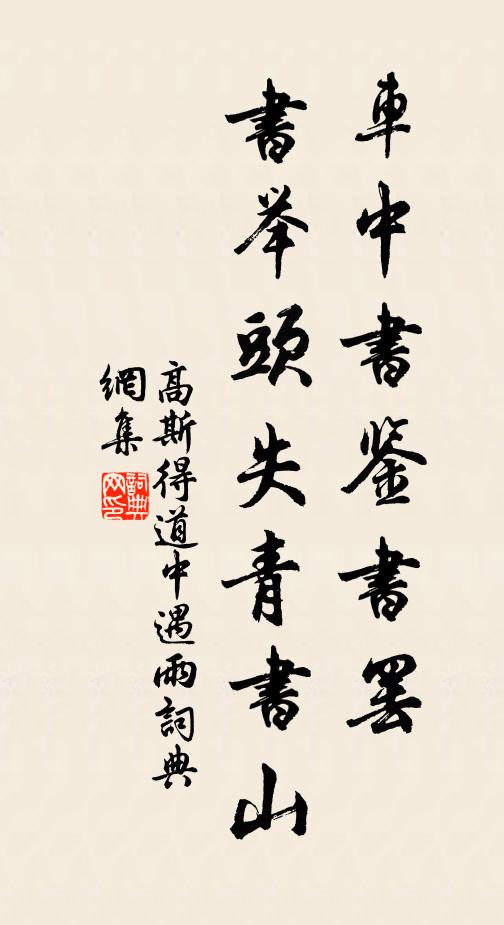 車中書鉴書罢
書举頭失青書山
高斯得道中遇雨詞典
網集
詞典網印